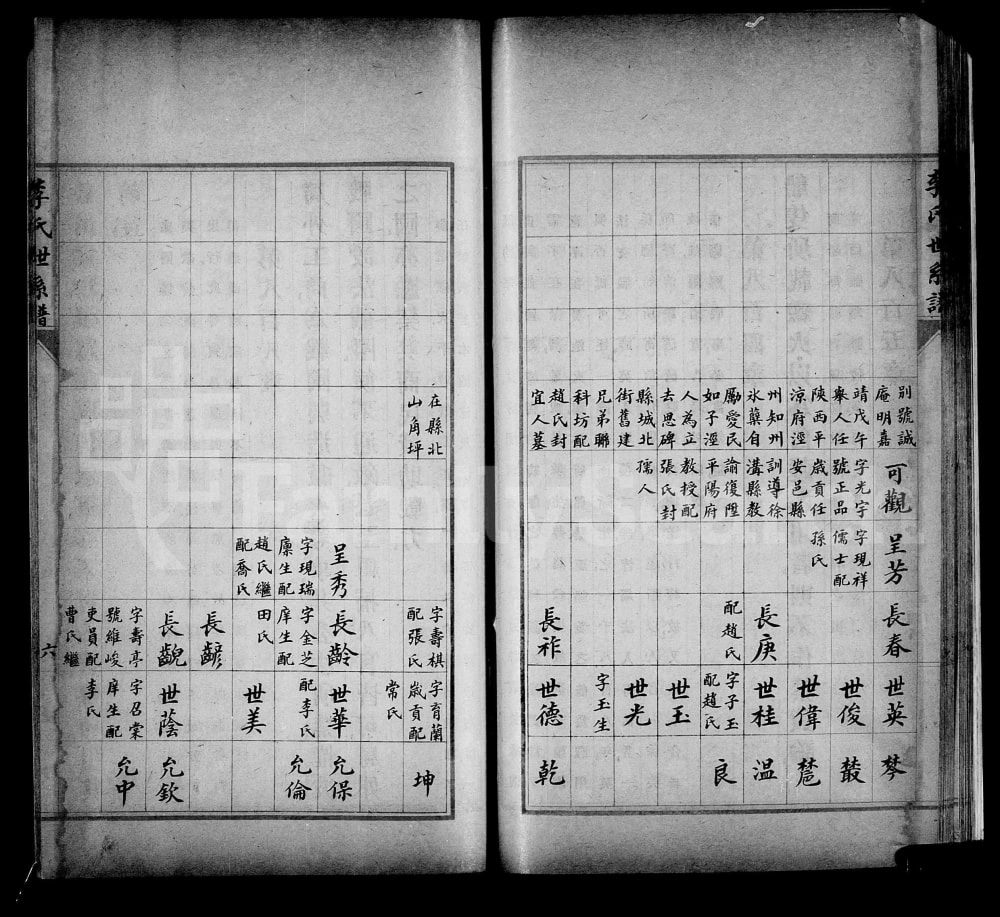 李氏世系譜
別號誠
庵明嘉
靖戊午
舉人任
陝西平
涼府涇
州知州
氷蘗自
勵愛民
如子涇
人為立
去思碑
縣城北
街舊建
兄弟聯
科坊配
趙氏封
宜人墓
在縣北
山角坪
可觀
字光宇
號正品
歲貢任
安邑縣
訓導徐
溝縣教
諭復陞
平陽府
教授配
張氏封
孺人
呈芳
字現祥
儒士配
孫氏
呈秀
字現瑞
廪生配
趙氏繼
配喬氏
長春
長庚
配趙氏
長祚
字壽棋
配張氏
長齡
字金芝
庠生配
田氏
長
長齯
字壽亭
號維峻
吏員配
曹氏繼
世英
世俊
世偉
世桂
字子玉
配趙氏
世玉
世光
字玉生
世德
字育蘭
歲貢配
常氏
世華
配李氏
世美
世蔭
字召棠
庠生配
李氏
棽
溫
良
乾
坤
允保
允倫
允欽
允中
李氏世系譜
六